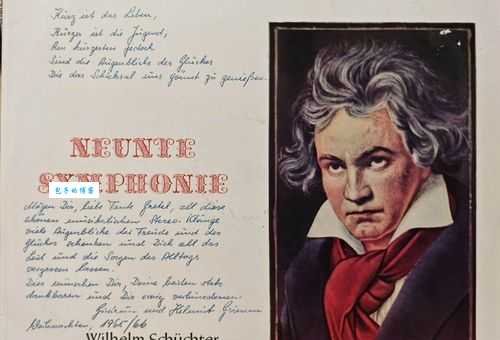 Kurz ist das Leben,
Kürzer ist die Jugend,
Am kürzesten jedoch
Sind die Augenblicke des Glückes
Die das Schicksal uns gönnt zu genießen.
NEUNTE
SYMPHONIE
包子的博客
Mögen Dir, liebe Tante Gretel, all diese
schönen musikalischen Stereo-Klänge
viele Augenblicke der Freude und des
Glückes schenken und Dich all das
Leid und die Sorgen des Alltags
vergessen lassen.
Dies wünschen Dir, Deine besten stets
dankbaren und Dir ewig verbundenen
Gudrun und Helmut Grimm
Weihnachten, 1965/66
Wilhelm Schüchter